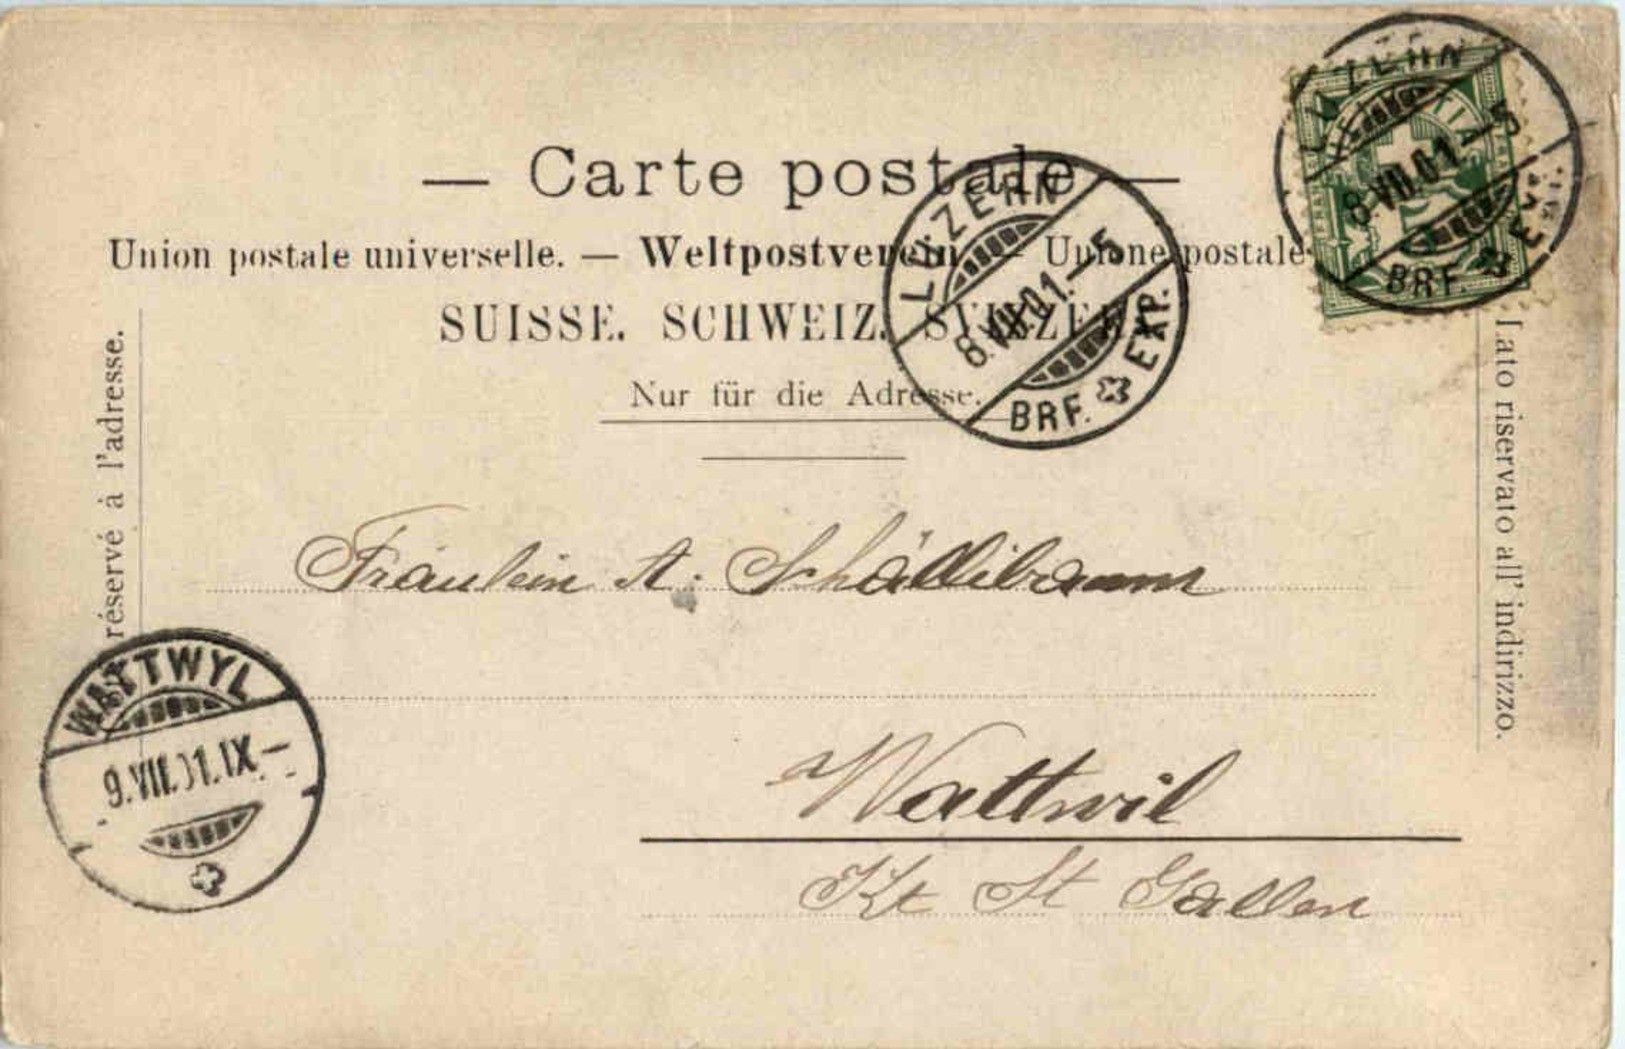 — Carte postale —
Union postale universelle. — Weltpostverein — Unione postale
SUISSE. SCHWEIZ. SVIZZERA
Nur für die Adresse.
réservé à l'adresse.
Lato riservato all' indirizzo.
LUZERN
8.VII.01.–5
BRF. EXP.
LUZERN
8.VII.01–5
BRF. EXP.
Fräulein A. Schällibaum
Wattwil
Kt St Gallen
WATTWYL
9.VII.01.IX–